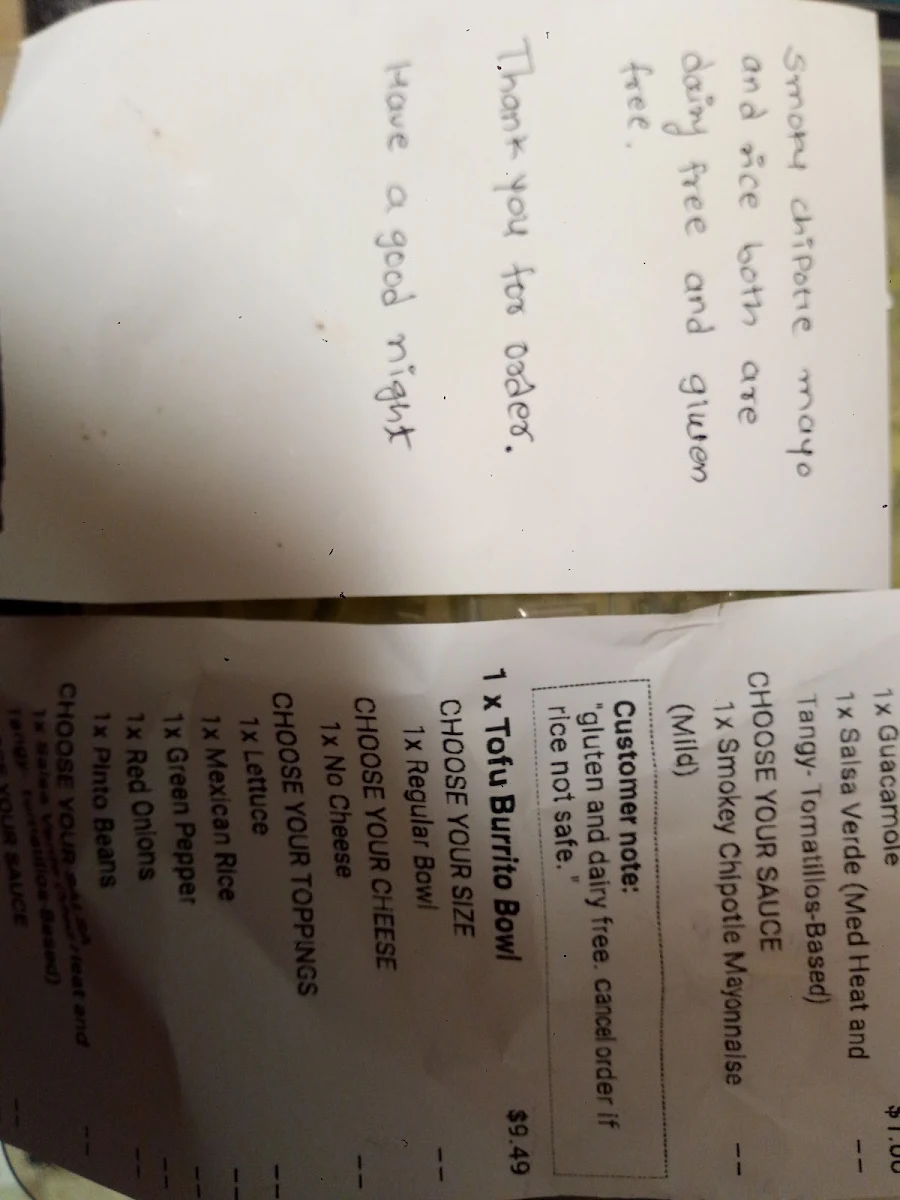 Smoky chipotle mayo
and rice both are
dairy free and gluten
free.
Thank you for order.
Have a good night
1x Guacamole
$1.00
1x Salsa Verde (Med Heat and
Tangy- Tomatillos-Based)
--
CHOOSE YOUR SAUCE
1x Smokey Chipotle Mayonnaise
(Mild)
--
Customer note:
"gluten and dairy free. cancel order if
rice not safe. "
1 x Tofu Burrito Bowl $9.49
CHOOSE YOUR SIZE
1x Regular Bowl --
CHOOSE YOUR CHEESE
1x No Cheese --
CHOOSE YOUR TOPPINGS
1x Lettuce --
1x Mexican Rice --
1x Green Pepper --
1x Red Onions --
1x Pinto Beans --
CHOOSE YOUR SALSA
1x Salsa Verde (Med Heat and --
Tangy- Tomatillos-Based)
YOUR SAUCE --